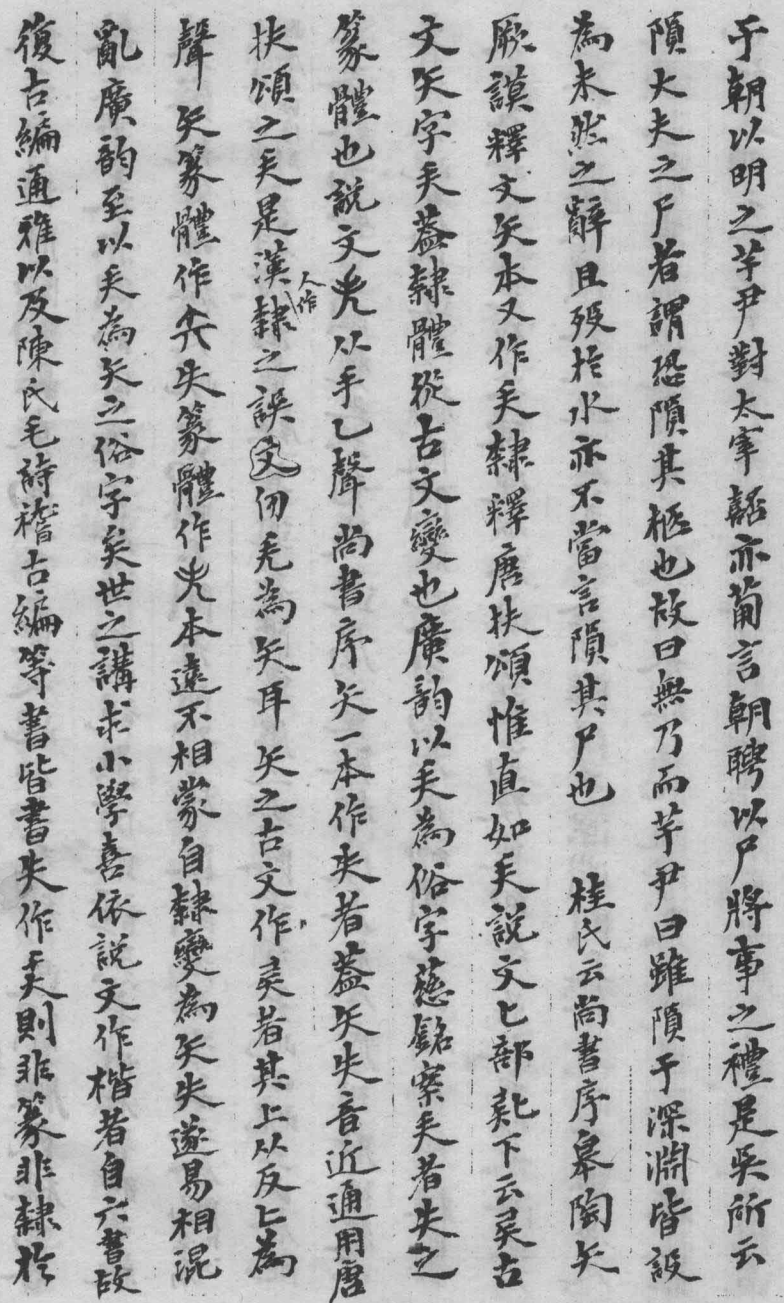 于朝以明之芋尹對太宰嚭亦葡言朝聘以尸將事之禮是吳所云
隕大夫之尸者謂恐隕其柩也故曰無乃而芋尹曰雖隕于深淵皆設
為未然之辭且歿於水亦不當言隕其尸也　桂氏云尚書序皋陶矢
厥謨釋文矢本又作𡗗隸釋唐扶頌惟直如𡗗說文匕部𠤗下云𠤕古
文矢字𡗗葢隸體從古文變也廣韵以𡗗為俗字慈銘案𡗗者失之
篆體也說文𡴥从手乙聲尚書序矢一本作失者葢矢失音近通用唐
扶頌之𡗗是漢隸人作之誤文仞𡗗為矢耳矢之古文作𠤕者其上从反匕為
聲矢篆體作𠂕失篆體作𡴥本遠不相蒙自隸變為矢失遂易相混
亂廣韵至以𡗗為矢之俗字矣世之講求小學喜依說文作楷者自六書故
復古編通雅以及陳氏毛詩稽古編等書皆書失作𡗗則非篆非隸於